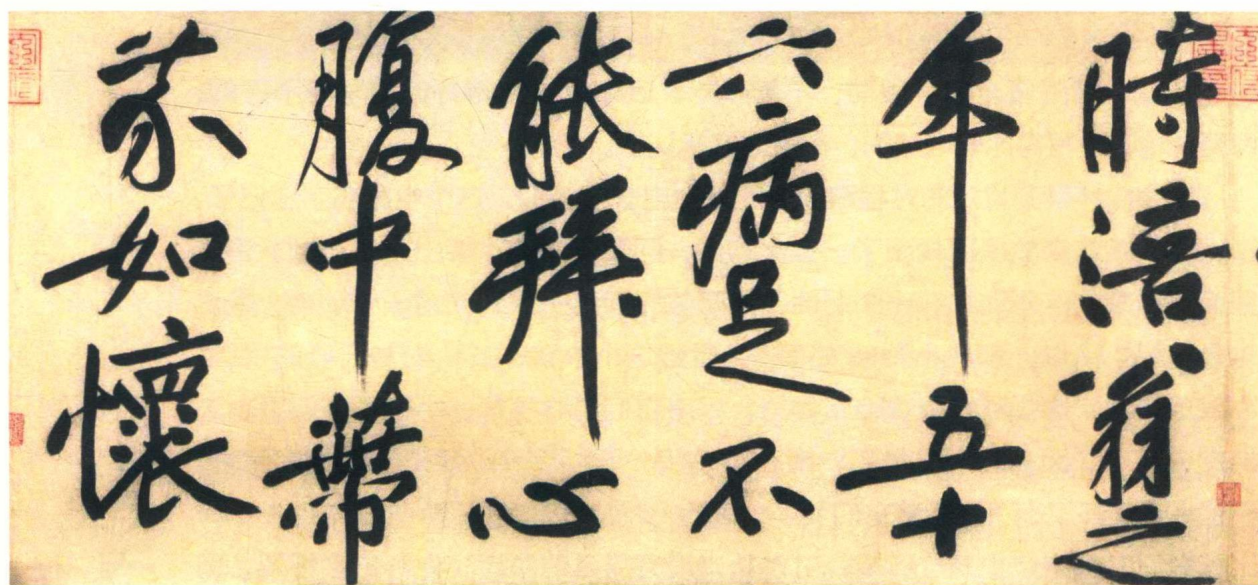 時涪翁之
年五十
六病足不
能拜心
腹中蔕
芥如懷